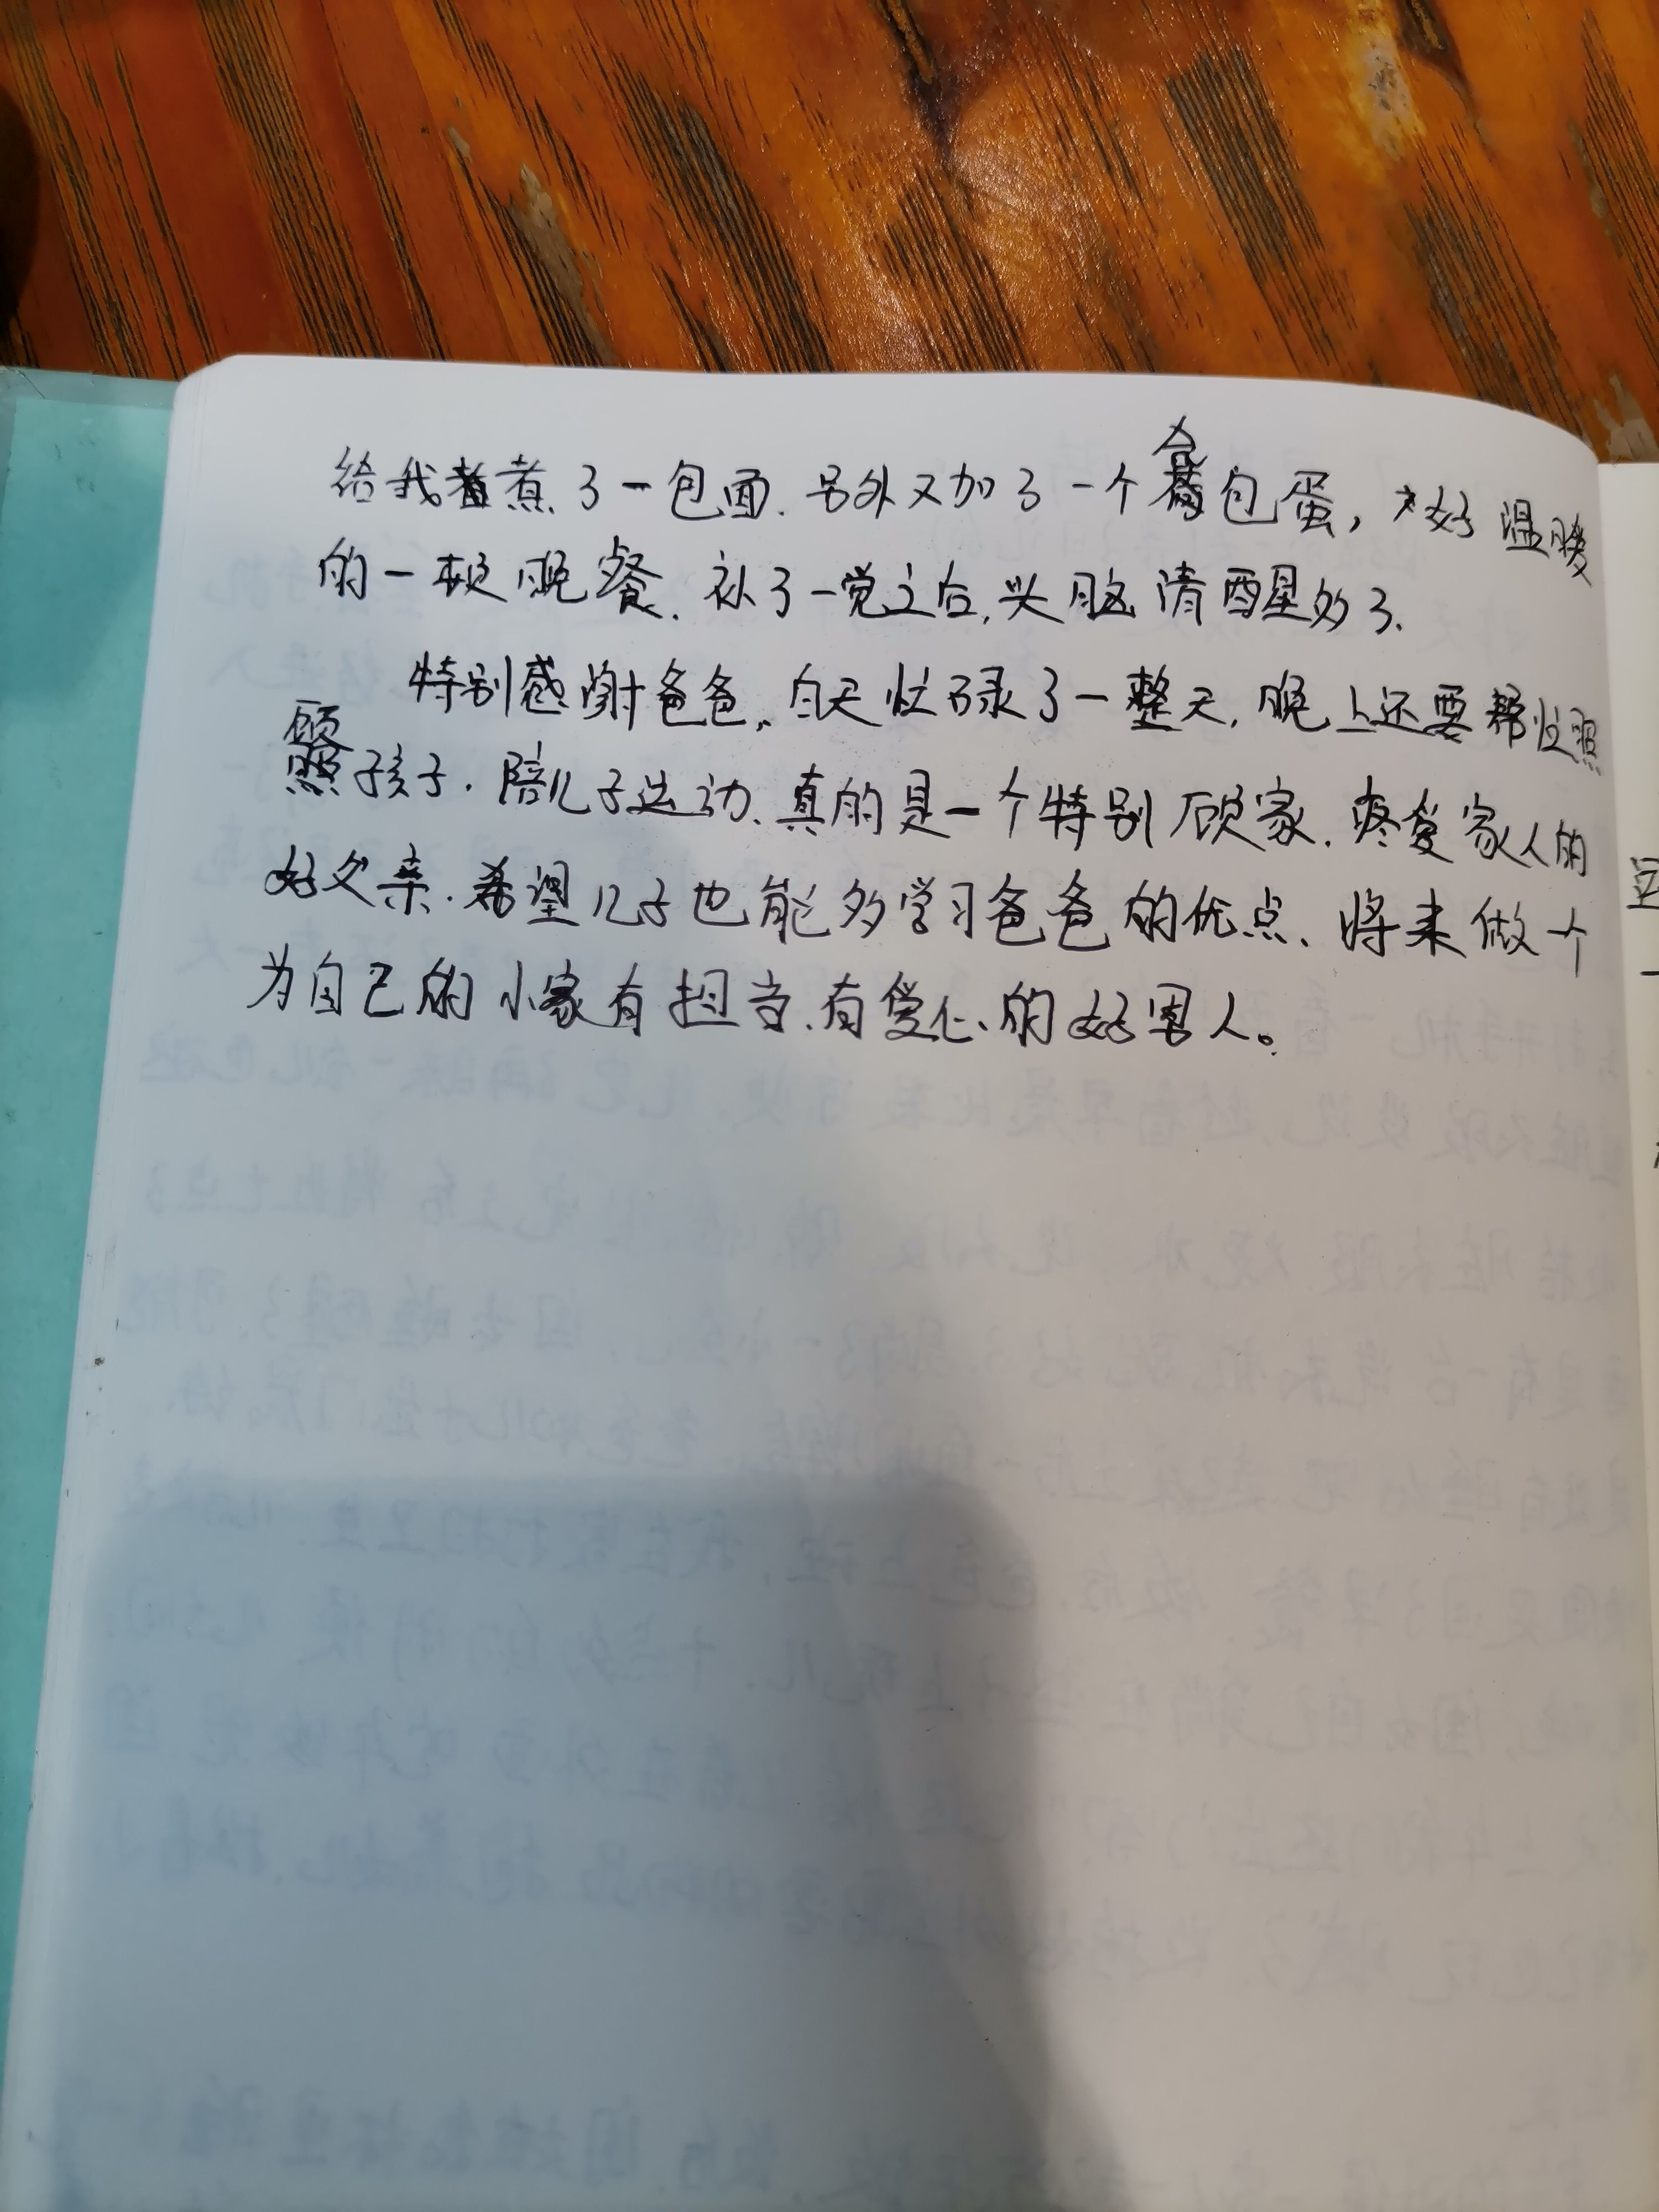 给我煮了一包面.另外又加了一个荷包蛋,好温暖
的一顿晚餐.补了一觉之后,头脑清醒多了.
特别感谢爸爸,白天忙碌了一整天,晚上还要帮忙照
顾孩子.陪儿子运动、真的是一个特别顾家.疼爱家人的
好父亲.希望儿子也能多学习爸爸的优点、将来做个
为自己的小家有担当.有爱心的好男人。